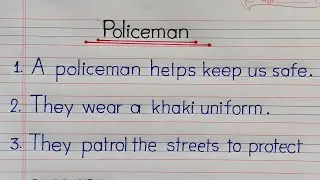 Policeman
1. A policeman helps keep us safe.
2. They wear a khaki uniform.
3. They patrol the streets to protect